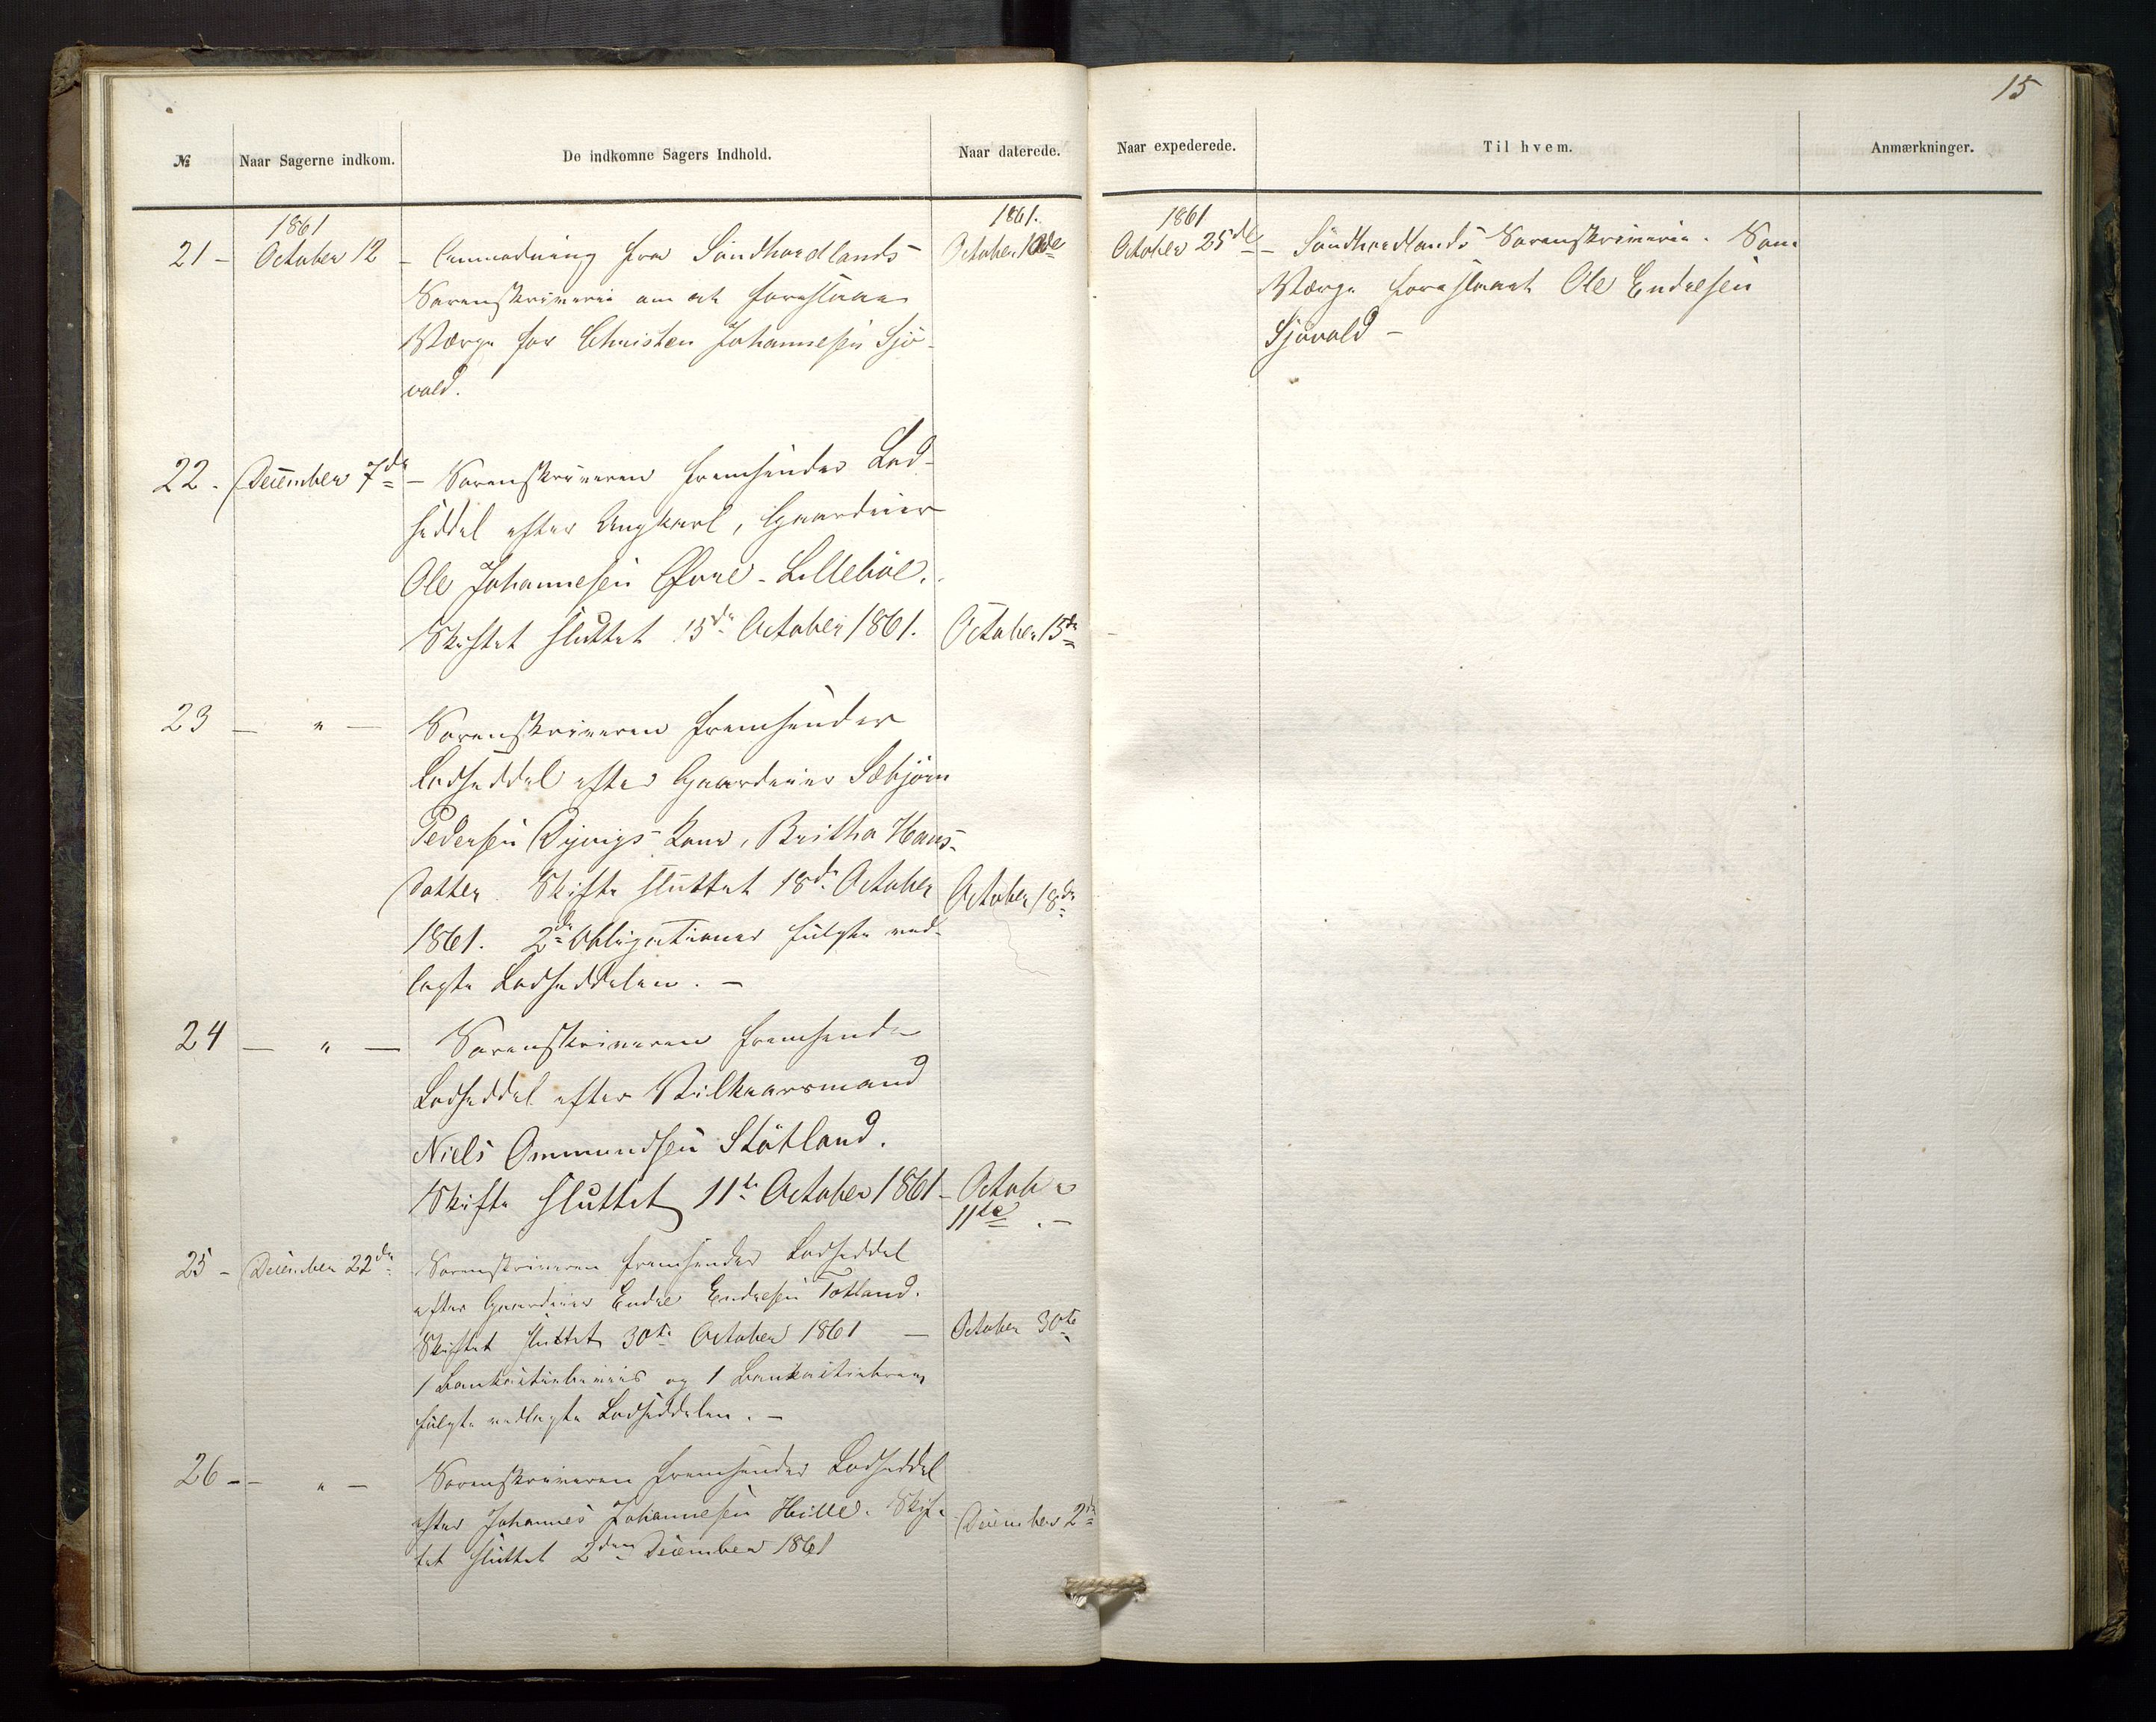 15
№
Naar Sagerne indkom.
De indkomne Sagers Indhold.
Naar daterede.
Naar expederede.
Til hvem.
Anmærkninger.
1861
1861.
1861
21 - October 12 - Anmodning fra Söndhordlands
Sorenskriverie om at foreslaae
Værge for Christen Johannesen Sjö-
vold.
October 10de
October 25de - Söndhordlands Sorenskriverie. Som
Værge foreslaaet Ole Endresen
Sjövold -
22. December 7de - Sorenskriveren fremsender Lod-
seddel efter Ungkarl, Gaardeier
Ole Johannesen Øvre-Lilleböe.
Skiftet sluttet 15de October 1861. October 15de
23 - " - Sorenskriveren fremsender
Lodseddel efter Gaardeier Sæbjörn
Pedersen Dyvigs Kone, Britha Hans-
datter. Skifte sluttet 18de October October 18de
1861. 2de Obligationer fulgte ved-
lagte Lodseddelen. -
24 - " - Sorenskriveren fremsender
Lodseddel efter Vilkaarsmand
Niels Ommundsen Stötland.
Skifte sluttet 11te October 1861 - October
11te. -
25 - December 22de Sorenskriveren fremsender Lodseddel
efter Gaardeier Endre Endresen Totland.
Skiftet sluttet 30te October 1861 - October 30te
1 og 1
fulgte vedlagte Lodseddelen. -
26 - " - Sorenskriveren fremsender Lodseddel
efter Johannes Johannesen Hille. Skif-
tet sluttet 2den December 1861
December 2de